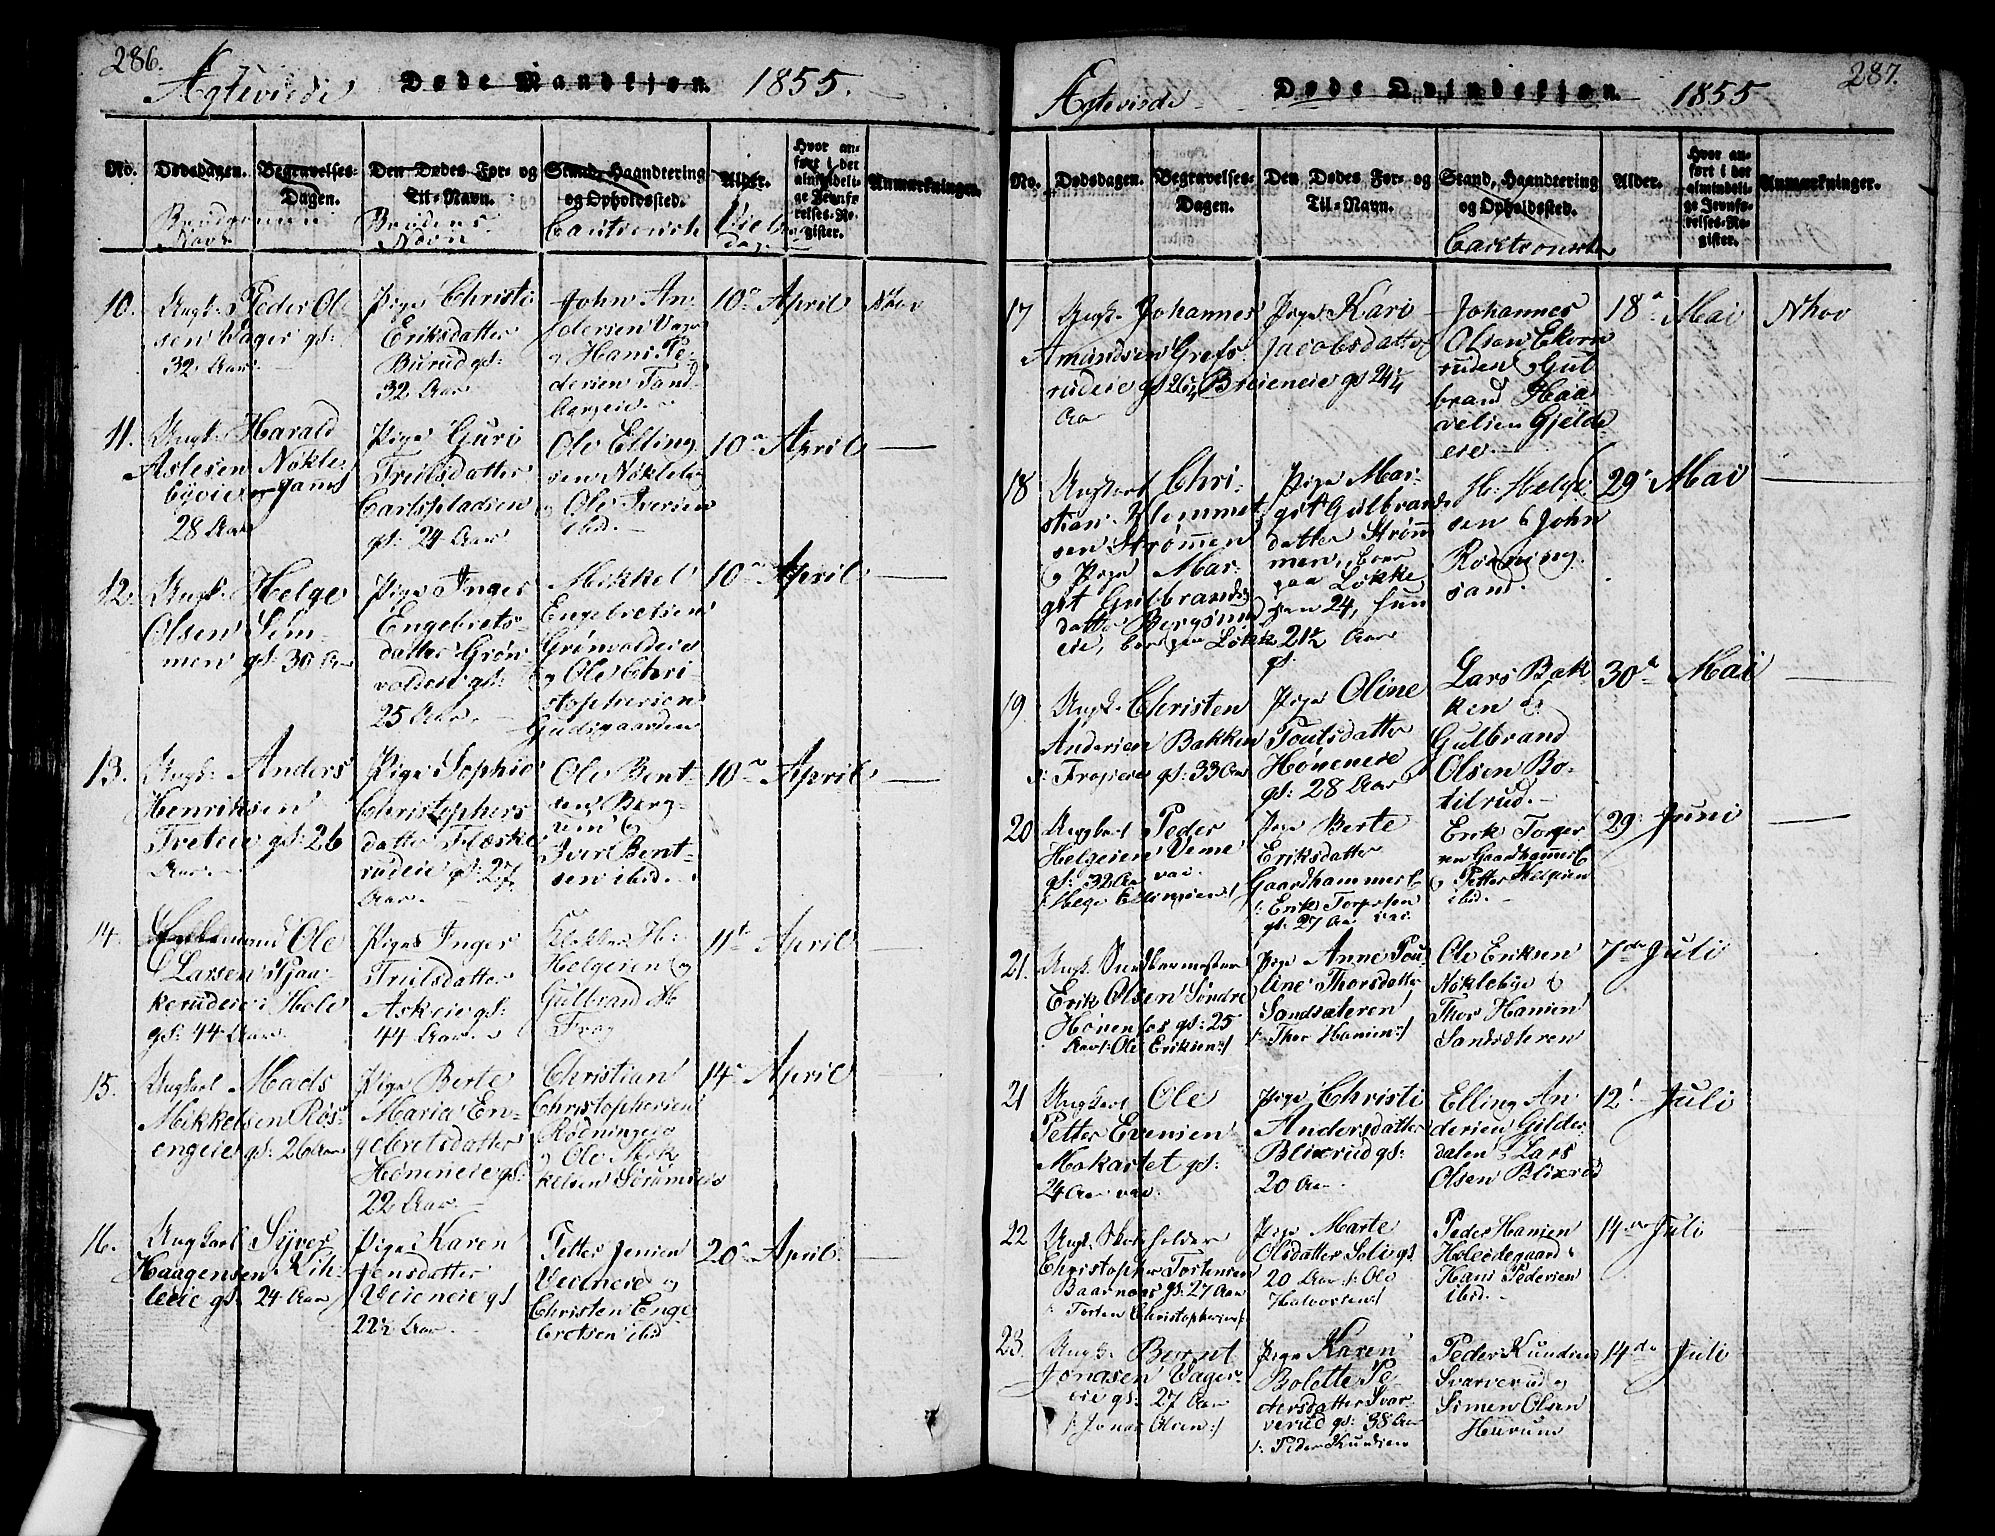 286.
Ægteviede Døde Mandskjøn. 1855.
No.
Dødsdagen.
Brudgommens
Navn
Begravelses-
Dagen.
Den Dødes For- og
Til-Navn.
Brudens
Navn
Stand, Haandtering
og Opholdssted.
Cautionister
Alder.
Viel
dag
Hvor an-
ført i det
almindeli-
ge Jevnfø-
relses-Re-
gister.
Anmærkninger.
10.
Ungk. Peder Ol
sen Vager gs:
32 Aar.
Pige Christi
Eriksdatter
Burud gs:
32 Aar
John An
dersen Vager
og Hans Pe
dersen Tand
bergeie.
10de April
Nhov
11.
Ungk. Harald
Aslesen Nökle
byeie gammel
28 Aar
Pige Guri
Truilsdatter
Carlspladsen
gs: 24 Aar
Ole Elling
sen Nökleby
og Ole Iversen
ibid.
10de April
12.
Ungk. Helge
Olsen Sem-
men gs: 30 Aar
Pige Inger
Engebrets-
datter Grön
voldeie gs:
25 Aar.
Mikkel
Engebretsen
Grönvoldeie
og Ole Chri
stophersen
Gudsgaarden
10de April
13.
Ungk. Anders
Henriksen
Treteie gs: 26
Aar.
Pige Sophie
Christophers
datter Flæske
rudeie gs: 27
Aar.
Ole Bent-
sen Berg-
sund og
Iver Bent-
sen ibid.
10de April
14.
Enkemand Ole
Larsen Skjaa-
kerudeie i Hole
gs: 44 Aar.
Pige Inger
Truilsdatter
Askeie gs:
44 Aar.
Klokker H:
Helgesen og
Gulbrand H
Frog
11te April
15.
Ungkarl Mads
Mikkelsen Rös-
engeie gs: 26 Aar
Pige Berte
Maria En-
gebretsdatter
Höneneie gs:
22 Aar.
Christian
Christophersen
Rödningeie
og Ole Mik
kelsen Sörumseie
14de April
16.
Ungkarl Syver
Haagensen Kih-
leeie gs: 24 Aar
Pige Karen
Jensdatter
Veieneie gs
22½ Aar
Petter Jensen
Veieneie og
Christen Enge
bretsen ibid
20de April
287.
Ægteviede Døde Qvindeskjøn. 1855
No.
Dødsdagen.
Begravelses-
Dagen.
Den Dødes For- og
Til-Navn.
Stand, Haandtering
og Opholdssted.
Cautionister
Alder.
Hvor an-
ført i det
almindeli-
ge Jevnfø-
relses-Re-
gister.
Anmærkninger.
17
Ungk. Johannes
Amundsen Grefs
rudeie gs 26¼
Aar
Pige Kari
Jacobsdatter
Breieneie gs 24¼
Johannes
Olsen Ekorn
ruden og Gul
brand Haa
velsen Gjelde
eie.
18de Mai
Nhov
18
Ungkarl Chri-
stian Klemmet
sen Strömmen
og Pige Mar-
git Gulbrands
datter Bergsund
eie, boer paa Lökke
Pige Mar-
git Gulbrands
datter Ström
men, boer
paa Lökke
han 24, hun
21½ Aar
gs.
H. Helge
sen og John
Rödning
sand.
29de Mai
19.
Ungk. Christen
Andersen Bakken
gs: 33 Aar
Pige Oline
Poulsdatter
Höneneie
gs: 28 Aar
Lars Bak
ken og
Gulbrand
Olsen Bo-
tilrud.
30de Mai
20
Ungkarl Peder
Helgesen Veme
gs: 32 Aar vac.
/: Helge Ellingsen :/
Pige Berte
Eriksdatter
Gaardhammer
/: Erik Torgersen
gs: 27 Aar vac.
Erik Torger
sen Gaardhammer
og Petter Helgesen
ibid.
29de Juni
21.
Ungk. Sundbormester
Erik Olsen Söndre
Hönenfos gs: 25
Aar /: Ole Eriksen :/
Pige Anne Pou
line Thorsdatter
Sandsæteren
/: Thor Hansen :/
Ole Eriksen
Nöklebye og
Thor Hansen
Sandsæteren
7de Juli
21
Ungkarl Ole
Petter Evensen
Mokastet gs:
24 Aar vac.
Pige Christi
Andersdatter
Blixrud gs:
20 Aar.
Elling An
dersen Gilder
dalen og Lars
Olsen Blixrud
12te Juli
22
Ungk. Skoleholder
Christopher Torstensen
Baarnaas gs: 27 Aar
/: Torsten Christophersen :/
Pige Marte
Olsdatter Soli gs
20 Aar /: Ole
Halvorsen :/
Peder Hansen
Holeidegaard
Hans Pedersen
ibid.
14de Juli
23.
Ungk. Bernt
Jonasen Vager-
eie gs: 27 Aar
/: Jonas Olsen :/
Pige Karen
Bolette Pe
dersdatter Svar
verud gs: 38 Aar
/: Peder Knudsen
Peder Knudsen
Svarverud og
Simen Olsen
Heivum
14de Juli